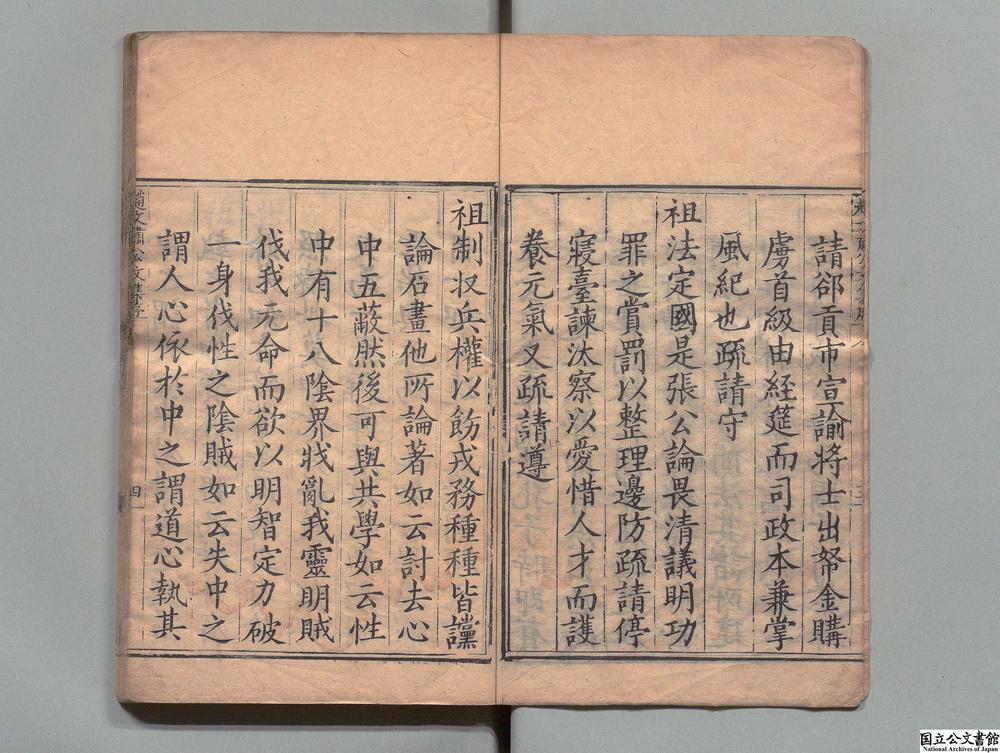 請郤貢市宣諭將士出帑金購
虜首級由經筵而司政本兼掌
風紀也疏請守
祖法定國是張公論畏清議明功
罪之賞罰以整理邊防疏請停
寢臺諫汰察以愛惜人才而護
養元氣又疏請遵
祖制収兵權以飭戎務種種皆讜
論石畫他所論著如云討去心
中五蔽然後可與共學如云性
中有十八陰界戕亂我靈明賊
伐我元命而欲以明智定力破
一身伐性之陰賊如云失中之
謂人心依於中之謂道心執其
趙文肅公文集序
四
国立公文書館
National Archives of Japan